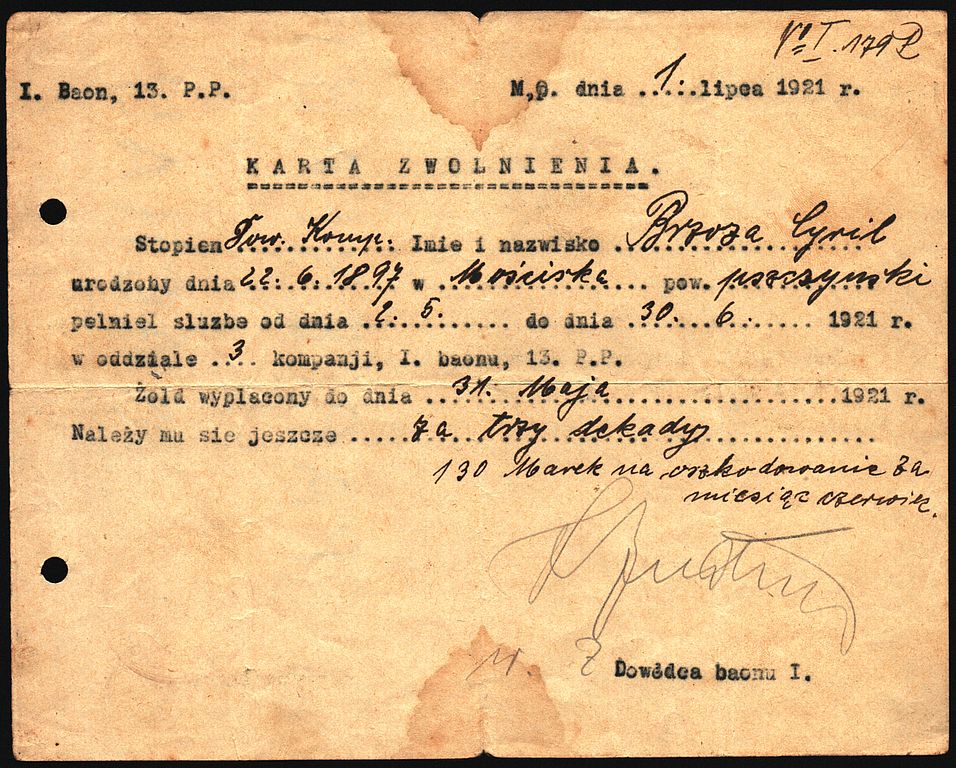 I. 179
I. Baon, 13. P.P. M.p. dnia .1...lipca 1921 r.
KARTA ZWOLNIENIA.
Stopien Tow. Komp. Imie i nazwisko Brzoza Cyril
urodzony dnia 22.6.1897 w Mościska pow. pszczynski
pelniel sluzbe od dnia .2. 5. do dnia .30. 6. 1921 r.
w oddziale ..3 kompanji, I. baonu, 13. P.P.
Żold wyplacony do dnia 31. Maja 1921 r.
Należy mu sie jeszcze za trzy dekady
130 Marek na oszkodowanie za
miesiąc czerwiec.
Dowódca baonu I.